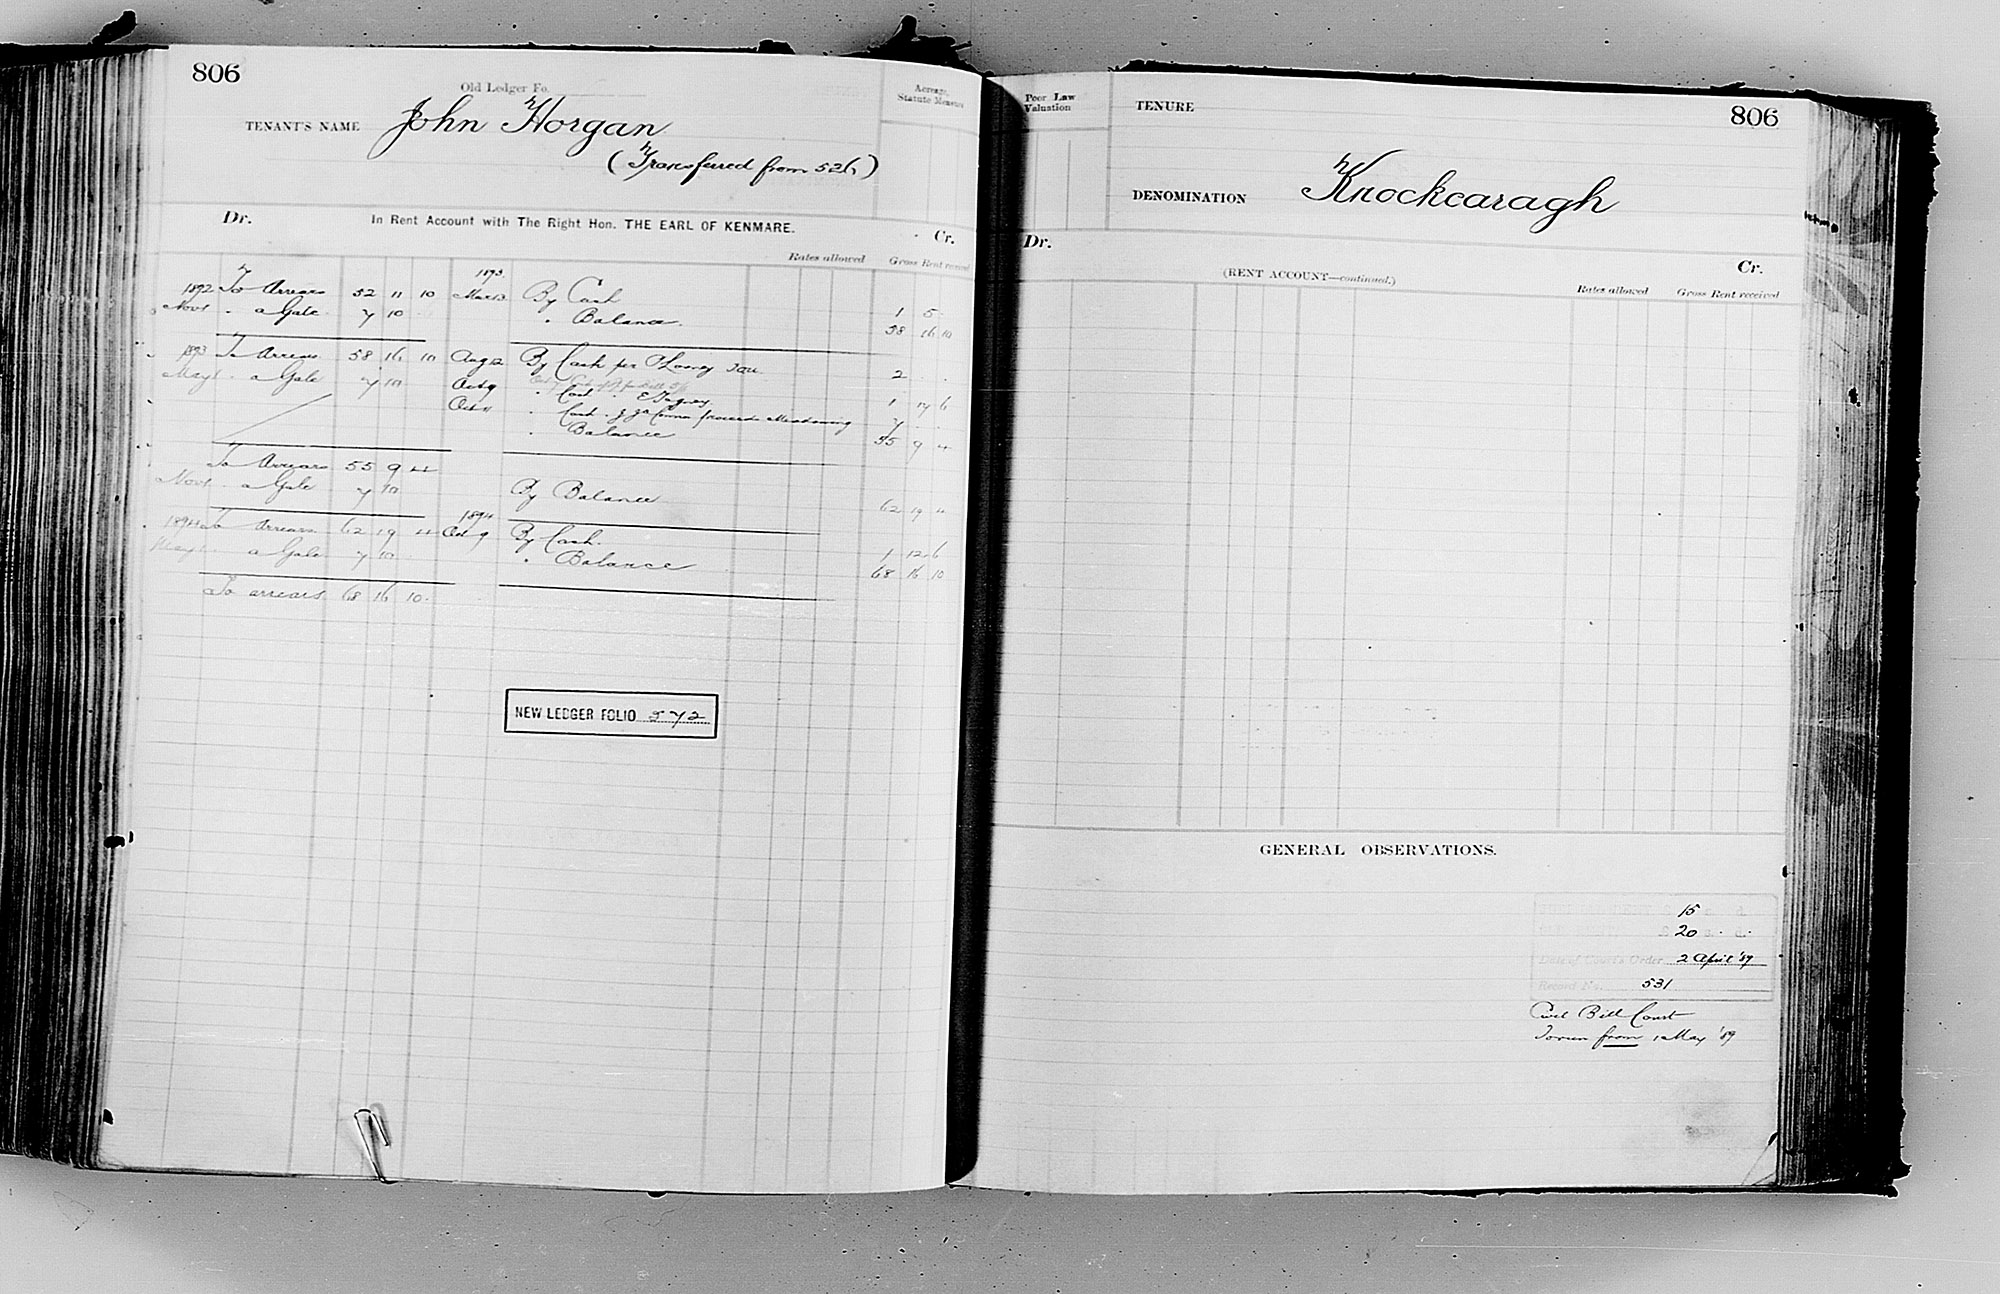 806
Old Ledger Fo.
TENANT'S NAME John Horgan
(Transferred from 526)
Acreage,
Statute Measure
Dr. In Rent Account with The Right Hon. THE EARL OF KENMARE. Cr.
Rates allowed Gross Rent received
1893
1892 To Arrears 52 11 10 Mar 13 By Cash 1 5
Nov 1 " a Gale 7 10 " Balance 58 16 10
1893 To Arrears 58 16 10 Aug 12 By Cash per 2
May 1 " a Gale 7 10 Oct 9 " Cash 1 17 6
Oct 11 " Cash 7
" Balance 55 9 4
To Arrears 55 9 4
Nov 1 " a Gale 7 10 By Balance 62 19 4
1894
1894 To Arrears 62 19 4 Oct 9 By Cash 1 12 6
May 1 a Gale 7 10 " Balance 68 16 10
To arrears 68 16 10
NEW LEDGER FOLIO 572
Poor Law
Valuation
TENURE
806
DENOMINATION Knockcaragh
Dr. (RENT ACCOUNT—continued.) Cr.
Rates allowed Gross Rent received
GENERAL OBSERVATIONS.
15 s. d.
£ 20 s. d.
Date of Court's Order 2 April '89
Record No. 531
Civil Bill Court
from 1 May '89